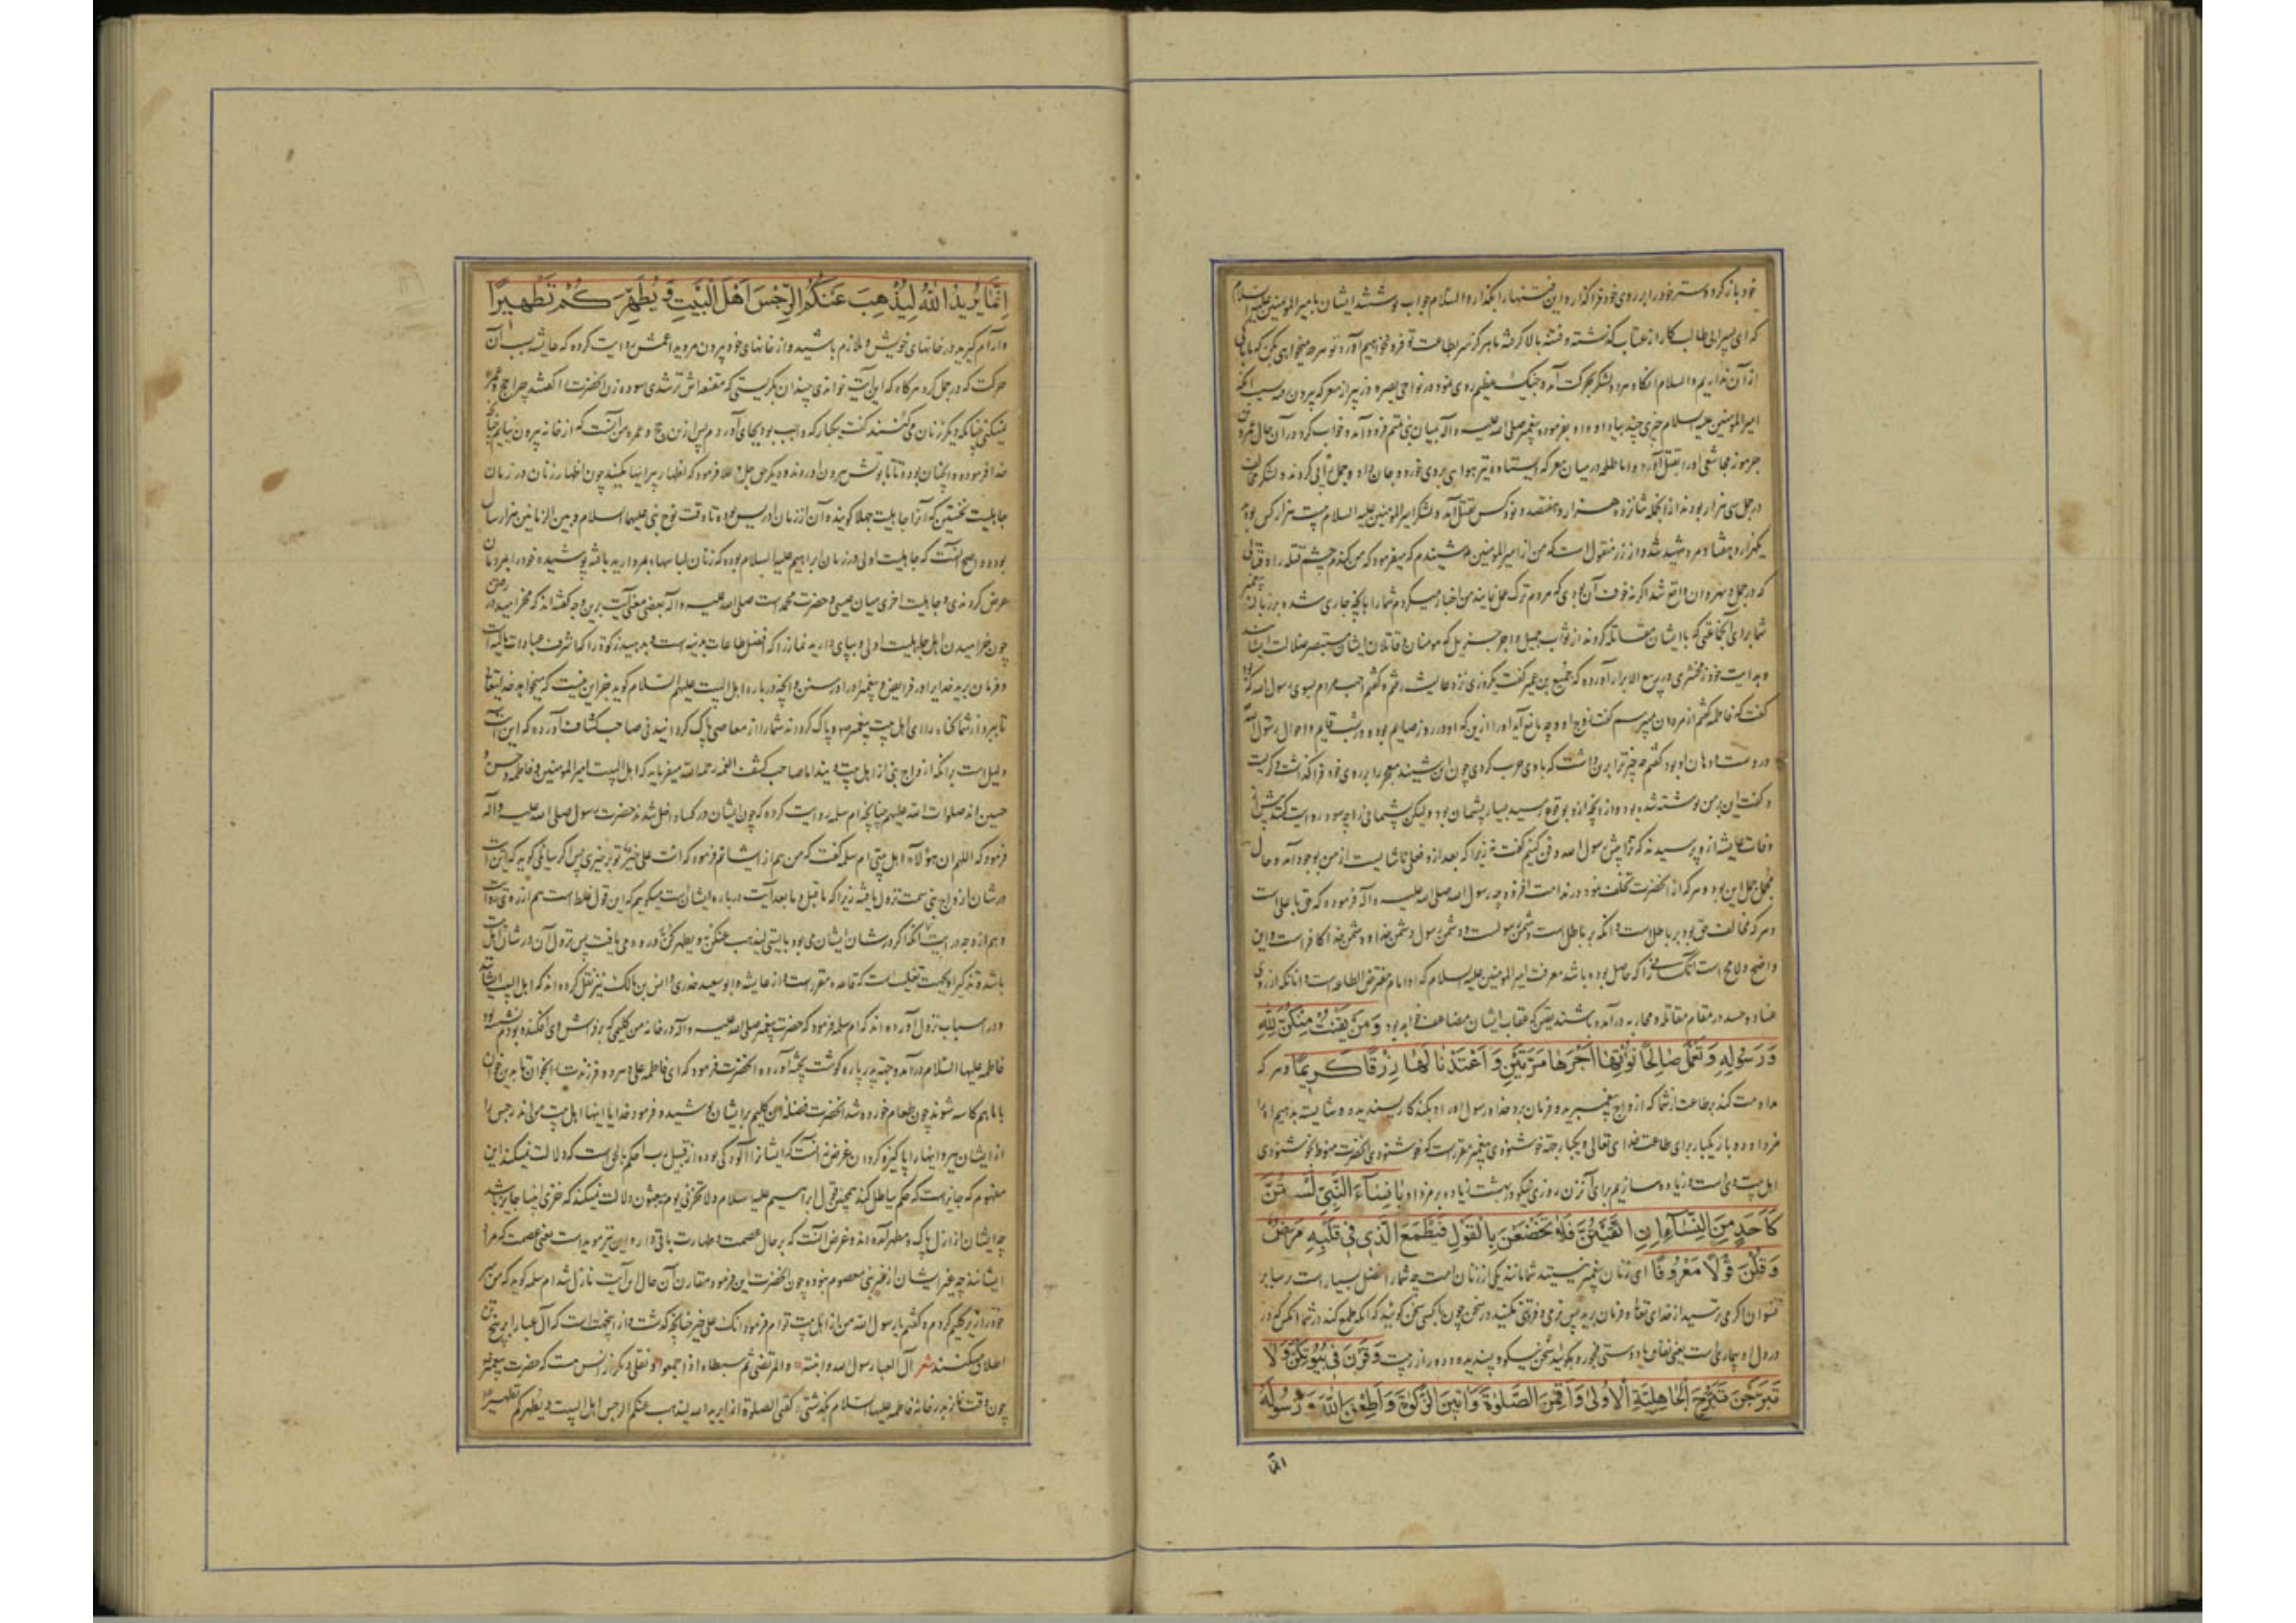 خود باز کرد و ستر خود را بر روی خود فرا گذار و این فتنها را بگذار والسلام جواب نوشتند ایشان بامیرالمومنین علیه السلام
که ای پسر ابی طالب کار از عتاب گذشته و فتنه بالا گرفته ما هرگز سر بطاعت تو فرو نخواهیم آورد تو هرچه میخواهی بکن که ما باکی
از آن نداریم والسلام آنگاه هر دو لشکر بحرکت آمد و جنگ عظیم روی نمود در نواحی بصره و زبیر از معرکه بیرون رفت بسبب آنکه
امیرالمومنین علیه السلام خبری چند بیاد او داد بفرموده پیغمبر صلی الله علیه و آله بمیان بنی تمیم فرود آمد و خواب کرد در آن حال عمرو بن
جرموز مجاشعی او را بقتل آورد و اما طلحه در میان معرکه ایستاده تیر هوایی بر وی خورد و جان داد و جمل را پی کردند و لشکر مخالف
در جمل سی هزار بودند از آنجمله شانزده هزار و هفتصد و نود کس بقتل آمد و لشکر امیرالمومنین علیه السلام بیست هزار کس بود
یکهزار و هفتاد مرد شهید شد و از زر منقول است که من از امیرالمومنین شنیدم که میفرمود که من کندم چشم فتنه را و قتالی
که در جمل و نهروان واقع شد اگر نه خوف آن بودی که مردم ترک عمل نمایند من اخبار میکردم شما را بآنچه جاری شده بر زبان پیغمبر
شما برای آنجماعتی که با ایشان مقاتله کردند از ثواب جمیل و اجر جزیل که مومنان و قاتلان ایشان مستبصر ضلالت ایشانند
و بهدایت خود زمخشری در ربیع الابرار آورده که جمیع بن عمیر گفت یکروزی نزد عایشه رفتم و گفتم احب مردم بسوی رسول الله که بود
گفت که فاطمه گفتم از مردان میپرسم گفت زوج او و چه مانع آید او را ازین که او در روز صایم بوده و در شب قایم و احوال رسول الله
در دست و دهان او بود گفتم چه چیز ترا برین داشت که با وی حرب کردی چون این شنید معجر را بر روی خود فرا گذاشت و گریست
و گفت این بر من نوشته شده بود و از آنچه ازو بوقوع رسید بسیار پشیمان بود ولیکن پشیمانی را چه سود روایت کنند پیش از
وفات عایشه از وی پرسیدند که ترا پیش رسول الله دفن کنیم گفت نه زیرا که بعد ازو فعلی ناشایست از من بوجود آمد و حال
مجمل جمل این بود و هر که از آنحضرت تخلف نمود در ندامت افزود چه رسول الله صلی الله علیه و آله فرموده که حق با علی است
و هر که مخالف حق بود بر باطل است و آنکه بر باطل است دشمن رسول است و دشمن رسول دشمن خداست و دشمن خدا کافر است و این
واضح و لایح است آنکسی را که حاصل بوده باشد معرفت امیرالمومنین علیه السلام که او امام مفترض الطاعه است و آنانکه از روی
عناد و حسد در مقام مقاتله و محاربه درآمده باشند یقین که عقاب ایشان مضاعف خواهد بود وَمَنْ يَقْنُتْ مِنْكُنَّ لِلّٰهِ
وَرَسُولِهِ وَتَعْمَلْ صَالِحًا نُؤْتِهَا أَجْرَهَا مَرَّتَيْنِ وَأَعْتَدْنَا لَهَا رِزْقًا كَرِيمًا و هر که
مداومت کند بر طاعت از شما که ازواج پیغمبرید و فرمان برد خدا و رسول او را و بکند کار پسندیده و شایسته بدهیم او را
مزد او دوبار یکبار برای طاعت خدای تعالی و یکبار جهة خوشنودی پیغمبر مقرر است که خوشنودی آنحضرت منوط بخوشنودی
اهل بیت وی است و زیاده سازیم برای آن زن روزی نیکو در بهشت زیاده بر مزد او يَا نِسَاءَ النَّبِيِّ لَسْتُنَّ
كَأَحَدٍ مِنَ النِّسَاءِ إِنِ اتَّقَيْتُنَّ فَلَا تَخْضَعْنَ بِالْقَوْلِ فَيَطْمَعَ الَّذِي فِي قَلْبِهِ مَرَضٌ
وَقُلْنَ قَوْلًا مَعْرُوفًا ای زنان پیغمبر نیستید شما مانند یکی از زنان امت چه شما را فضل بسیار است بر سایر
نسوان اگر می ترسید از خدای تعالی و فرمان برید پس نرمی و فروتنی مکنید در سخن چون با کسی سخن گویید که آنکه طمع کند در شما آنکس که در
در دل او بیماری است یعنی نفاق یا دوستی فجور و بگویید سخن نیکو و پسندیده و دور از ریبت وَقَرْنَ فِي بُيُوتِكُنَّ وَلَا
تَبَرَّجْنَ تَبَرُّجَ الْجَاهِلِيَّةِ الْأُولَىٰ وَأَقِمْنَ الصَّلٰوةَ وَآتِينَ الزَّكٰوةَ وَأَطِعْنَ اللّٰهَ وَرَسُولَهُ
انّما
إِنَّمَا يُرِيدُ اللّٰهُ لِيُذْهِبَ عَنْكُمُ الرِّجْسَ أَهْلَ الْبَيْتِ وَيُطَهِّرَكُمْ تَطْهِيرًا
و آرام گیرید در خانهای خویش و ملازم باشید و از خانهای خود بیرون مروید اعمش روایت کرده که عایشه بسبب آن
حرکت که در جمل کرد هرگاه که این آیت خواندی چندان بگریستی که مقنعه اش تر شدی سوده زن آنحضرت را گفتند چرا حج و عمره
نمیکنی چنانکه دیگر زنان می کنند گفت یکبار که واجب بود بجای آوردم پس ازین حج و عمره من آنست که از خانه بیرون نیایم چنانچه
خدا فرموده و همچنان بود تا تابوتش بیرون آوردند و دیگر حق جل و علا فرمود که اظهار پیرایها مکنید چون اظهار زنان در زمان
جاهلیت نخستین که آنرا جاهلیت جهلا گویند و آن از زمان ادریس بوده تا وقت نوح نبی علیهما السلام و بین الزمانین هزار سال
بوده و اصح آنست که جاهلیت اولی در زمان ابراهیم علیه السلام بوده که زنان لباسهاء بمروارید بافته پوشیده خود را بمردان
عرض کردندی و جاهلیت اخری میان عیسی و حضرت محمد است صلی الله علیه و آله بعضی معنی آیت برین وجه گفته اند که مخرامید در
چون خرامیدن اهل جاهلیت اولی و بپای دارید نماز را که افضل طاعات بدنیه است و بدهید زکوة را که اشرف عبادات مالیه است
و فرمان برید خدایرا در فرایض و پیغمبر او را در سنن و آنچه درباره اهل البیت علیهم السلام گوید جز این نیست که میخواهد خدایتعالی
تا ببرد از شما گناه را ای اهل بیت پیغمبر و پاک گرداند شما را از معاصی پاک گردانیدنی صاحب کشاف آورده که این آیت
دلیل است برآنکه ازواج نبی از اهل بیت ویند اما صاحب کشف الغمه رحمه الله میفرماید که اهل البیت امیرالمومنین و فاطمه و حسن و
حسین اند صلوات الله علیهم چنانچه ام سلمه روایت کرده که چون ایشان در کساء داخل شدند حضرت رسول صلی الله علیه و آله
فرمود که اللهم ان هؤلاء اهل بیتی ام سلمه گفت که من هم از ایشانم فرمود که انت علی خیر تو بر خیری پس اگر سائلی گوید که این آیت
در شان ازواج نبی سمت نزول یافته زیرا که ماقبل و مابعد آیت درباره ایشان است میگوییم که این قول غلط است هم از روی روایت
و هم از وجه درایت آنکه اگر در شان ایشان می بود بایستی لیذهب عنکن و یطهرکن ورود می یافت پس نزول آن در شان اهل بیت
باشد و تذکیر او بجهت تغلیب است که قاعده مقرر است و از عایشه و ابو سعید خدری و انس بن مالک نیز نقل کرده اند که اهل البیت ایشانند
و در اسباب نزول آورده اند که ام سلمه فرمود که حضرت پیغمبر صلی الله علیه و آله در خانه من کلیمی که بر فراش وی افکنده بودم نشسته بود
فاطمه علیها السلام درآمد و جهة پدر پاره گوشت پخته آورد آنحضرت فرمود که ای فاطمه علی و هر دو فرزندت را بخوان تا بدین خوان
با ما هم کاسه شوند چون طعام خورده شد آنحضرت فضله این کلیم بر ایشان پوشیده فرمود خدایا اینها اهل بیت من اند رجس را
از ایشان ببر و اینها را پاکیزه گردان غرض نه آنست که ایشانرا آلودگی بوده از قبیل سلب حکم نافی است که دلالت نمیکند این
مفهوم که جایز است که حکم بباطل کند همچنین قول ابراهیم علیه السلام و لا تخزنی یوم یبعثون دلالت نمیکند که خزی انبیا جایز باشد
چه ایشان از ازل پاک و مطهر آمده اند و غرض آنست که بر حال عصمت و طهارت باقی دار و این نیز موید است یعنی عصمت که مراد
ایشانند چه غیر ایشان از غیر نبی معصوم نبوده و چون آنحضرت این فرمود مقارن آن حال این آیت نازل شد ام سلمه گوید که من سر
خود را زیر کلیم کردم و گفتم یا رسول الله من از اهل بیت توام فرمود انک علی خیر چنانچه گذشت و از اینجهت است که آل عبا را بر پنج تن
اطلاق میکنند شعر آل العبا رسول الله و ابنته والمرتضی ثم سبطاه اذا اجتمعوا و نقلی دیگر از انس است که حضرت پیغمبر
چون وقت نماز بدر خانه فاطمه علیها السلام بگذشتی گفتی الصلوة انما یرید الله لیذهب عنکم الرجس اهل البیت و یطهرکم تطهیرا